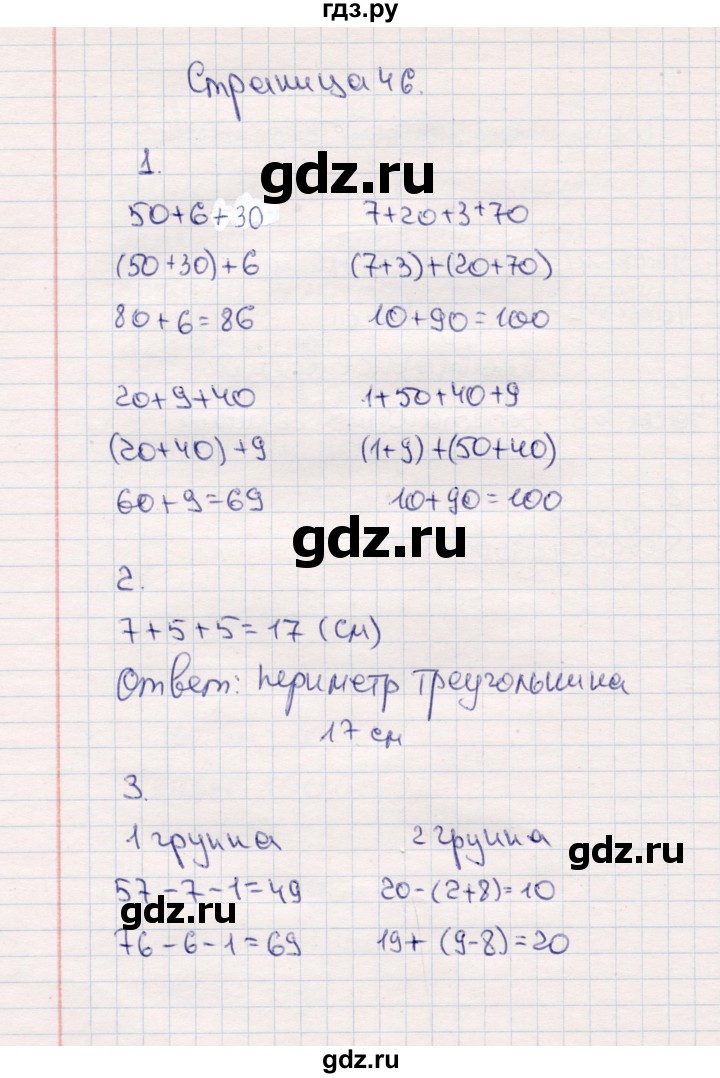 гдз.ру
Страница 46.
1.
gdz.ru
50+6+30 7+20+3+70
(50+30)+6 (7+3)+(20+70)
80+6=86 10+90=100
20+9+40 1+50+40+9
(20+40)+9 (1+9)+(50+40)
60+9=69 10+90=100
gdz.ru
2.
7+5+5=17 (см)
Ответ: периметр треугольника
17 см
3.
1 группа 2 группа
gdz.ru
57-7-1=49 20-(2+8)=10
gdz.ru
76-6-1=69 19+(9-8)=20
gdz.ru